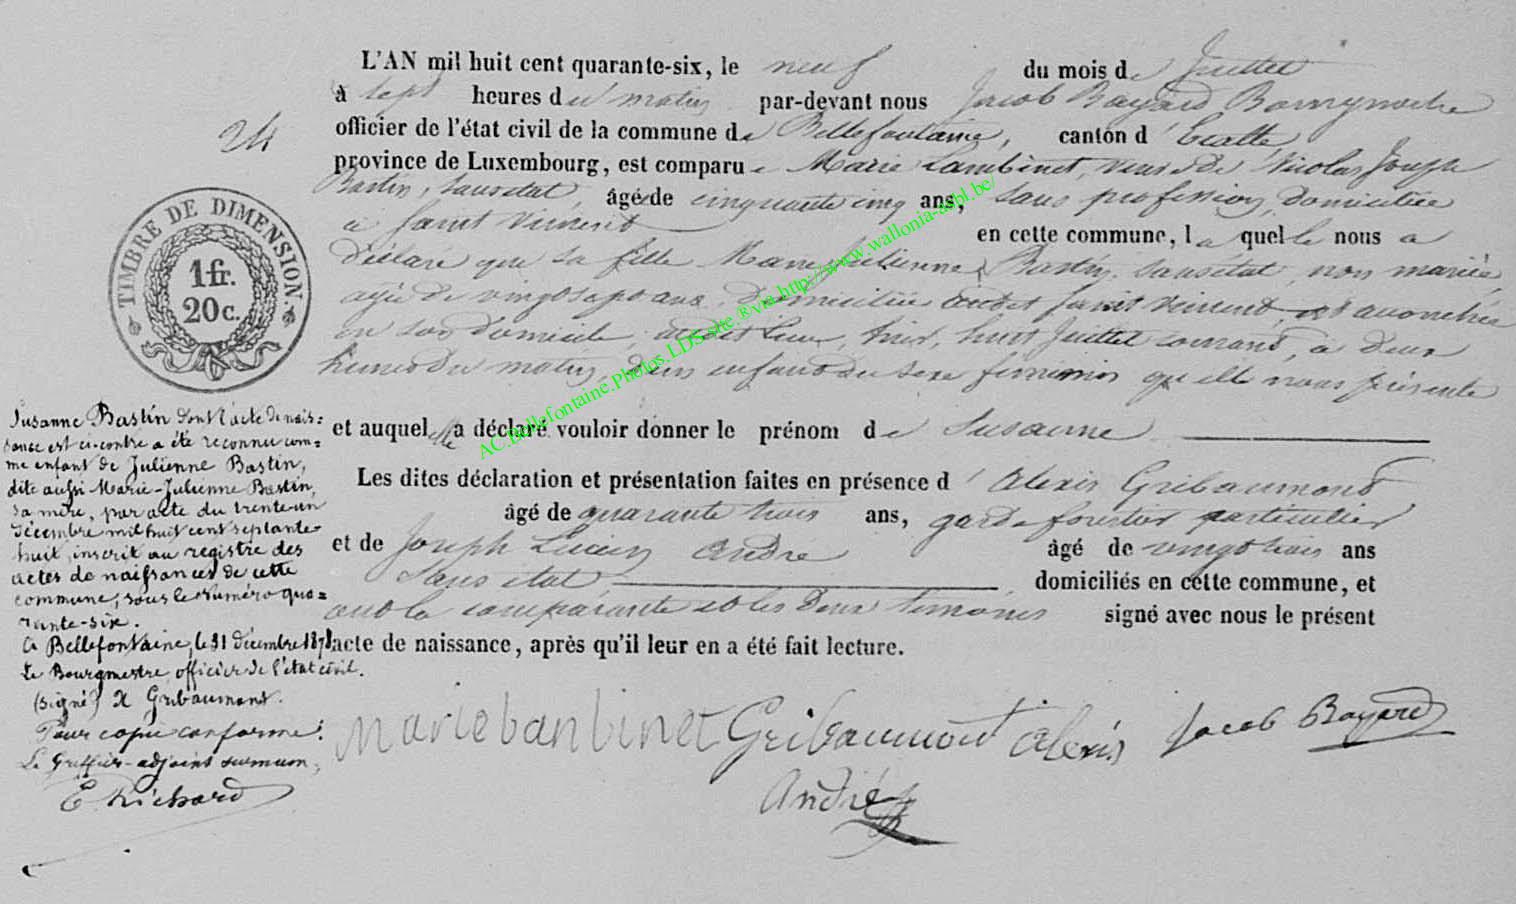 24
TIMBRE DE DIMENSION.
1fr.
20c.
L'AN mil huit cent quarante-six, le neuf du mois de Juillet
à sept heures du matin par-devant nous Jacob Bayard Bourgmestre
officier de l'état civil de la commune de Bellefontaine, canton d'Etalle
province de Luxembourg, est comparue Marie Lambinet, veuve de Nicolas Joseph
Bastin, sans état, âgée de cinquante cinq ans, sans profession, domiciliée
à Saint Vincent en cette commune, laquelle nous a
déclaré que sa fille Marie Julienne Bastin, sans état, non mariée,
agée de vingt sept ans, domiciliée audit Saint Vincent, est accouchée
en son domicile, audit lieu, hier, huit Juillet courant, à deux
heures du matin, d'un enfant du sexe féminin qu'elle nous présente
et auquel elle a déclaré vouloir donner le prénom de Susanne
Les dites déclaration et présentation faites en présence d'Alexis Gribaumont
âgé de quarante trois ans, garde forestier particulier
et de Joseph Lucien André âgé de vingt trois ans
sans état, domiciliés en cette commune, et
ont la comparante et les deux témoins signé avec nous le présent
acte de naissance, après qu'il leur en a été fait lecture.
Marie Lanbinet Gribaumont Alexis Jacob Bayard
André
Susanne Bastin dont l'acte de nais=
sance est ci-contre a été reconnu com=
me enfant de Julienne Bastin,
dite aussi Marie-Julienne Bastin,
sa mère, par acte du trente-un
décembre mil huit cent septante-
huit, inscrit au registre des
actes de naissances de cette
commune, sous le numéro qua=
rante-six.
A Bellefontaine, le 31 décembre 1878
Le Bourgmestre, officier de l'état civil.
(signé) X Gribaumont.
Pour copie conforme:
Le Greffier-adjoint surnum,
E Richard
AC.Bellefontaine.Photos.LDS.site ®via.http://www.wallonia-asbl.be/